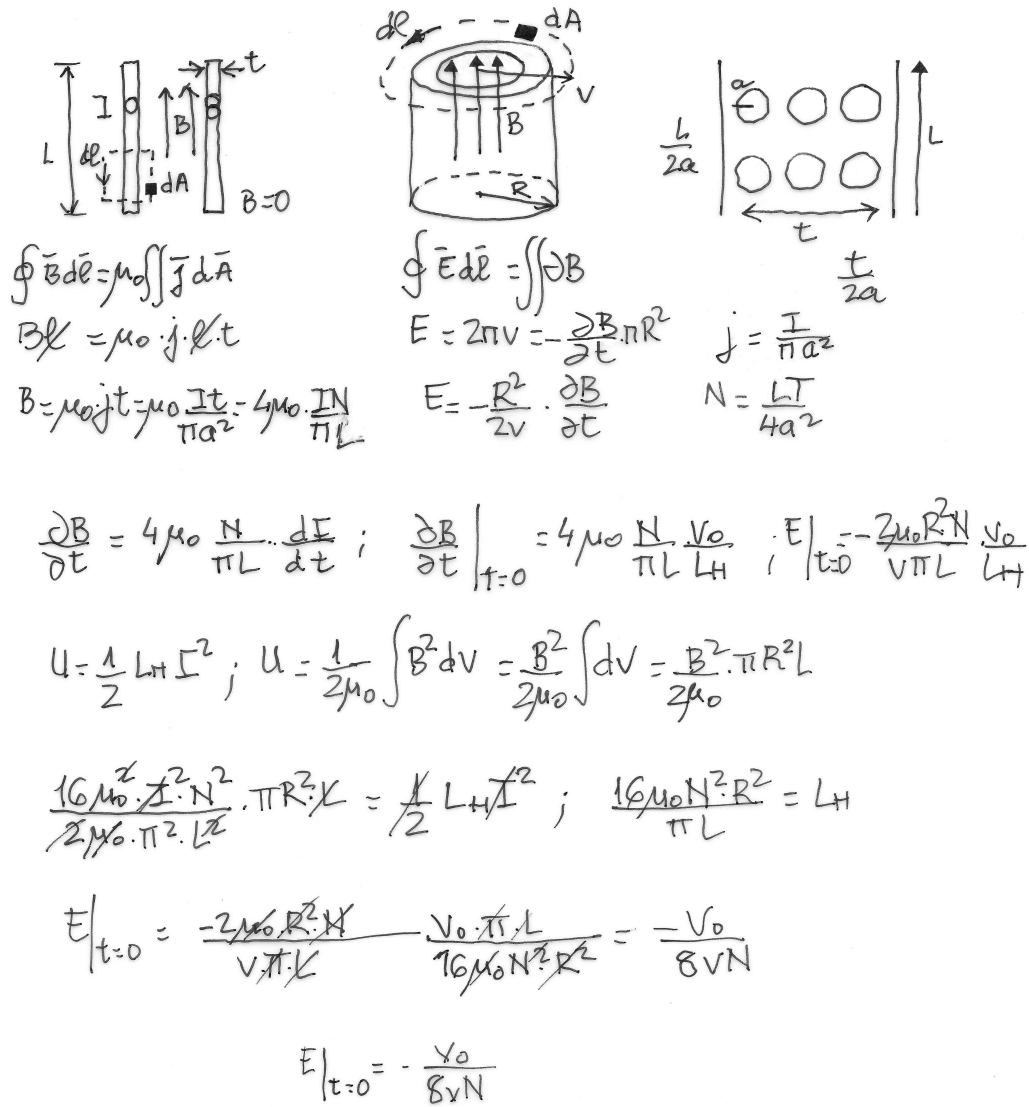 dl dA
t
I B L dl dA B=0
V B R
a L/2a L t t/2a
∮B̄dl̄=μ₀∬j̄dĀ
∮Ēdl̄=∬∂B
Bl = μ₀·j·l·t
E = 2πv = -∂B/∂t·πR²
j = I/πa²
B=μ₀·jt=μ₀·It/πa²=4μ₀·IN/πL
E=-R²/2v·∂B/∂t
N = LT/4a²
∂B/∂t = 4μ₀ N/πL·dI/dt ; ∂B/∂t|t=0 = 4μ₀ N/πL·V₀/LH ; E|t=0=-2μ₀R²N/vπL·V₀/LH
U=1/2 LH I² ; U=1/2μ₀∫B²dV=B²/2μ₀∫dV=B²/2μ₀·πR²L
16μ₀²·I²·N²/2μ₀·π²·L²·πR²·L = 1/2 LH I² ; 16μ₀N²·R²/πL = LH
E|t=0 = -2μ₀·R²·N/v·π·L V₀·π·L/16μ₀N²·R² = -V₀/8vN
E|t=0 = -V₀/8vN